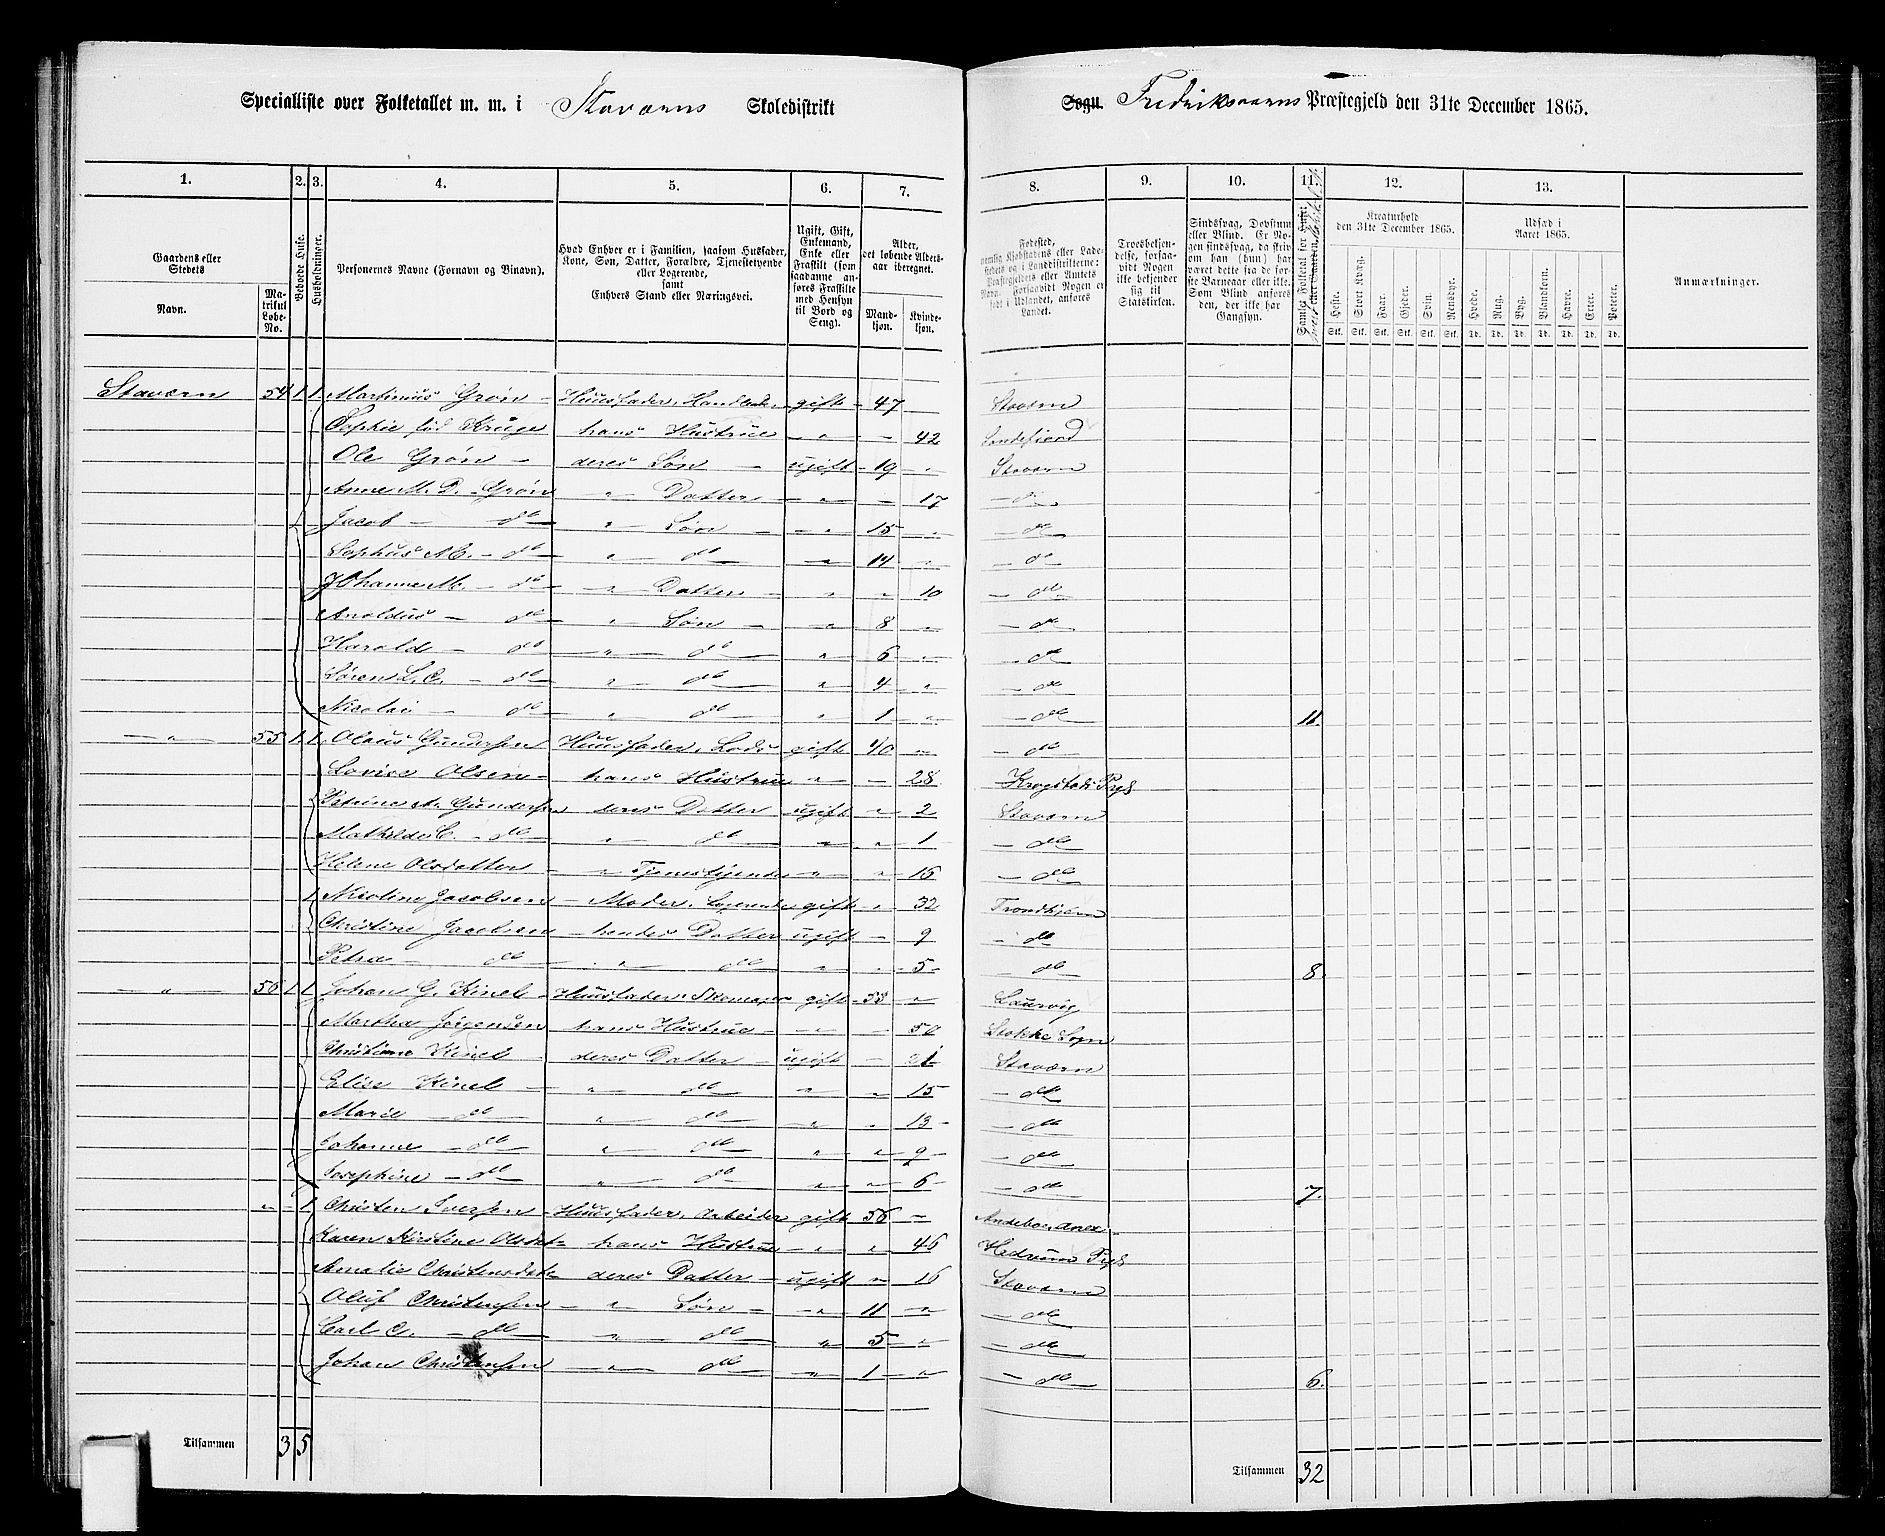 Specialliste over Folketallet m. m. i Staværns Skoledistrikt
Sogn. Fredriksværns Præstegjeld den 31te December 1865.
1. 2. 3. 4. 5. 6. 7. 8. 9. 10. 11. 12. 13.
Gaardens eller Stedets
Navn.
Matrikul Løbe-No.
Beboede Huse.
Husholdninger.
Personernes Navne (Fornavn og Binavn).
Hvad Enhver er i Familien, saasom Husfader, Kone, Søn, Datter, Forældre, Tjenestetyende eller Logerende, samt Enhvers Stand eller Næringsvei.
Ugift, Gift, Enkemand, Enke eller Fraskilt (som saadanne anføres Fraskilte med Hensyn til Bord og Seng).
Alder, det løbende Alders-aar iberegnet.
Mand-kjøn. Kvinde-kjøn.
Fødested,
Troesbekjendelse, forsaavidt Nogen ikke bekjender sig til Statskirken.
Sindssvag, Døvstum eller Blind.
Kreaturhold den 31te December 1865.
Heste. Stort Kvæg. Faar. Gjeder. Svin. Rensdyr.
Udsæd i Aaret 1865.
Hvede. Rug. Byg. Blandkorn. Havre. Erter. Poteter.
Anmærkninger.
Stavern 54 1 1 Martinius Grøn - Huusfader, gift 47 Stavern
Sophie fød Krüge hans Hustrue - " - 42 Sandefjord
Ole Grøn - deres Søn - ugift - 19 " Stavern
Anne M. D. Grøn " Datter - " - 17 - do
Jacob - do " Søn - " 15 " - do
Sophus M. - do " do " 14 " - do
Johanne M. - do " Datter " " 10 - do
Anoldus - do " Søn - " 8 " - do
Harald - do " do " 6 " - do
Søren L. C. - do " do " 4 " - do
Nicolai - do " do " 1 " - do 11
" 55 1 1 Olaus Gundersen Huusfader, Lods gift 40 - - do
Lovise Olsen - hans Hustrue " - 28 Krogstads Pgjl
Petrine M. Gundersen deres Datter ugift " 2 Stavern
Mathilde C. - do " do " " 1 - do
Helene Olsdatter - " Tjenestpige " " 15 - do
1 Nicoline Jacobsen - Moder, Logerende gift " 32 Trondhjem
Christine Jacobsen - hendes Datter ugift - 9 - do
Petra - do " do " " 5 - do 8.
" 56 1 1 Johan G. Kinel - Huusfader, Skomager gift - 53 " Laurvig
Martha Jørgensen hans Hustrue - " - 50 Stokke Sogn
Christiane Kinel - deres Datter - ugift - 21 Stavern
Elise Kinel - " do " " 15 - do
Marie - do " do " " 13 - do
Johanne - do " do " " 9 - do
Josephine - do " do " " 6 - do 7.
" 1 Christen Iversen - Huusfader, Arbeider gift 56 - Andebo Anex
Karen Kirstine Olsdat - hans Hustrue - " " 46 Hedrum Pgjl
Amalie Christensdat - deres Datter - ugift " 16 Stavern
Oluf Christensen - " Søn - " 11 " - do
Carl C. - do " do " 5 " - do
Johan Christensen - " do " 1 " - do 6.
Tilsammen 3 5
Tilsammen 32